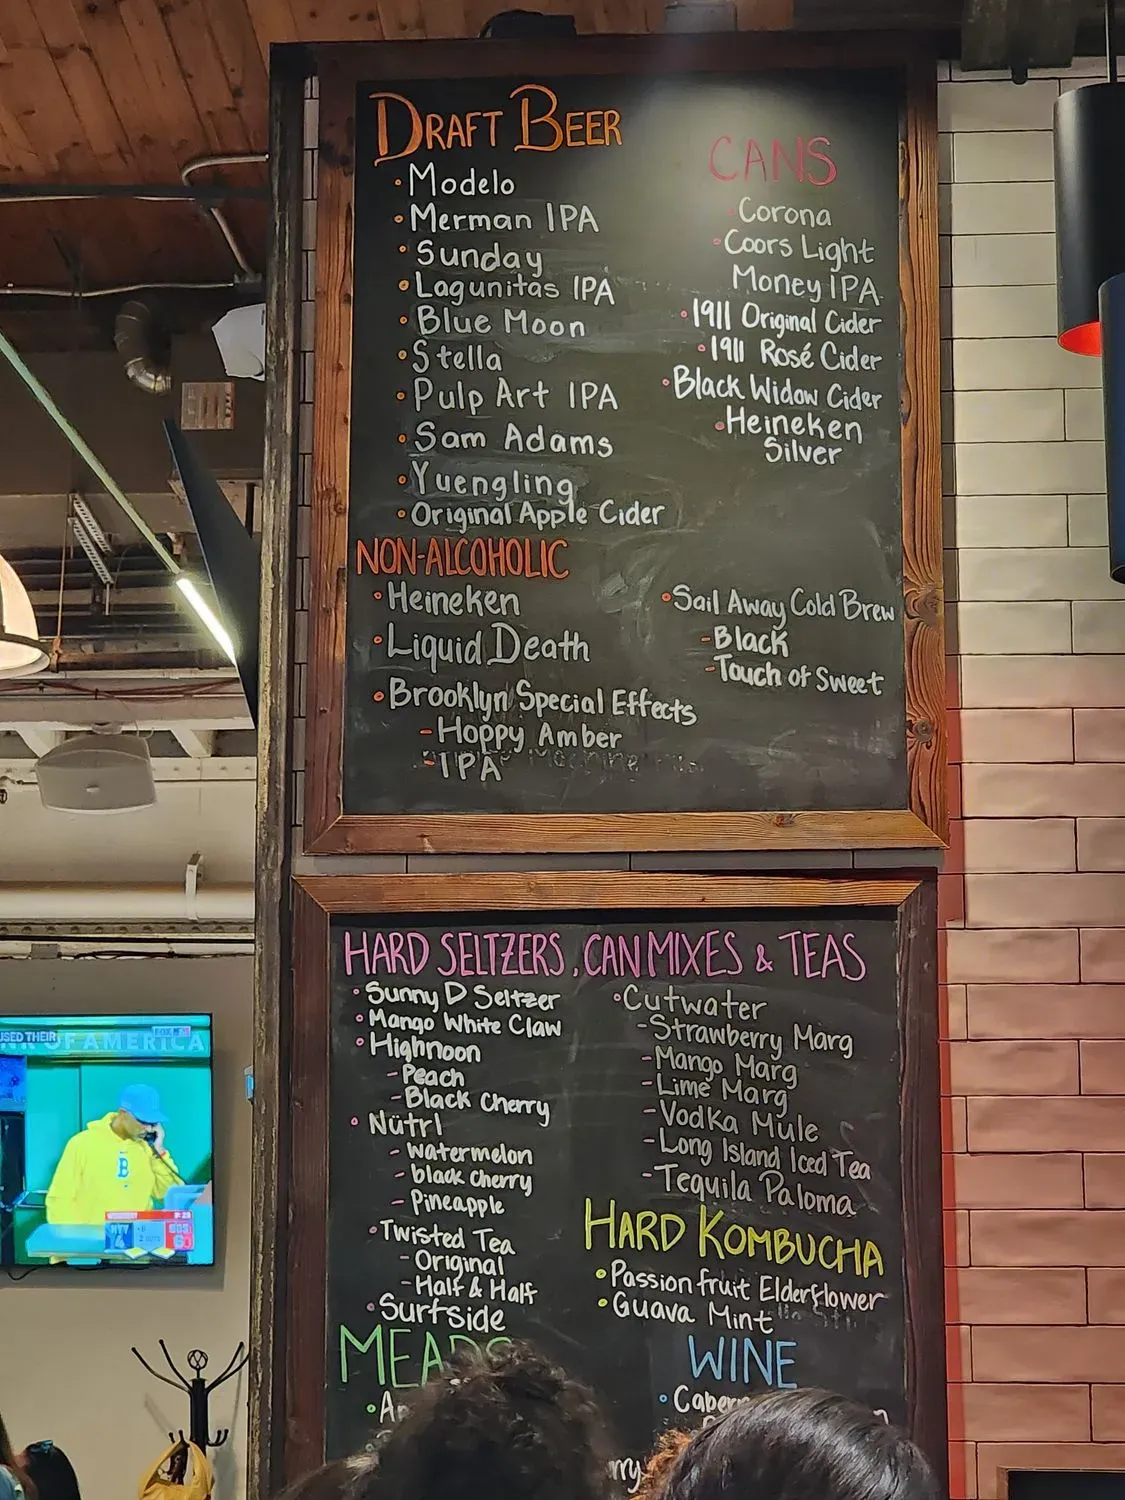 DRAFT BEER
• Modelo
• Merman IPA
• Sunday
• Lagunitas IPA
• Blue Moon
• Stella
• Pulp Art IPA
• Sam Adams
• Yuengling
• Original Apple Cider
CANS
• Corona
• Coors Light
Money IPA
• 1911 Original Cider
• 1911 Rosé Cider
• Black Widow Cider
• Heineken
Silver
NON-ALCOHOLIC
• Heineken
• Liquid Death
• Brooklyn Special Effects
- Hoppy Amber
- IPA
• Sail Away Cold Brew
- Black
- Touch of Sweet
HARD SELTZERS, CAN MIXES & TEAS
• Sunny D Seltzer
• Mango White Claw
• Highnoon
- Peach
- Black Cherry
• Nütrl
- watermelon
- black cherry
- Pineapple
• Twisted Tea
- Original
- Half & Half
• Surfside
• Cutwater
- Strawberry Marg
- Mango Marg
- Lime Marg
- Vodka Mule
- Long Island Iced Tea
- Tequila Paloma
HARD KOMBUCHA
• Passion fruit Elderflower
• Guava Mint
MEADS
WINE
USED THEIR
OF AMERICA
B